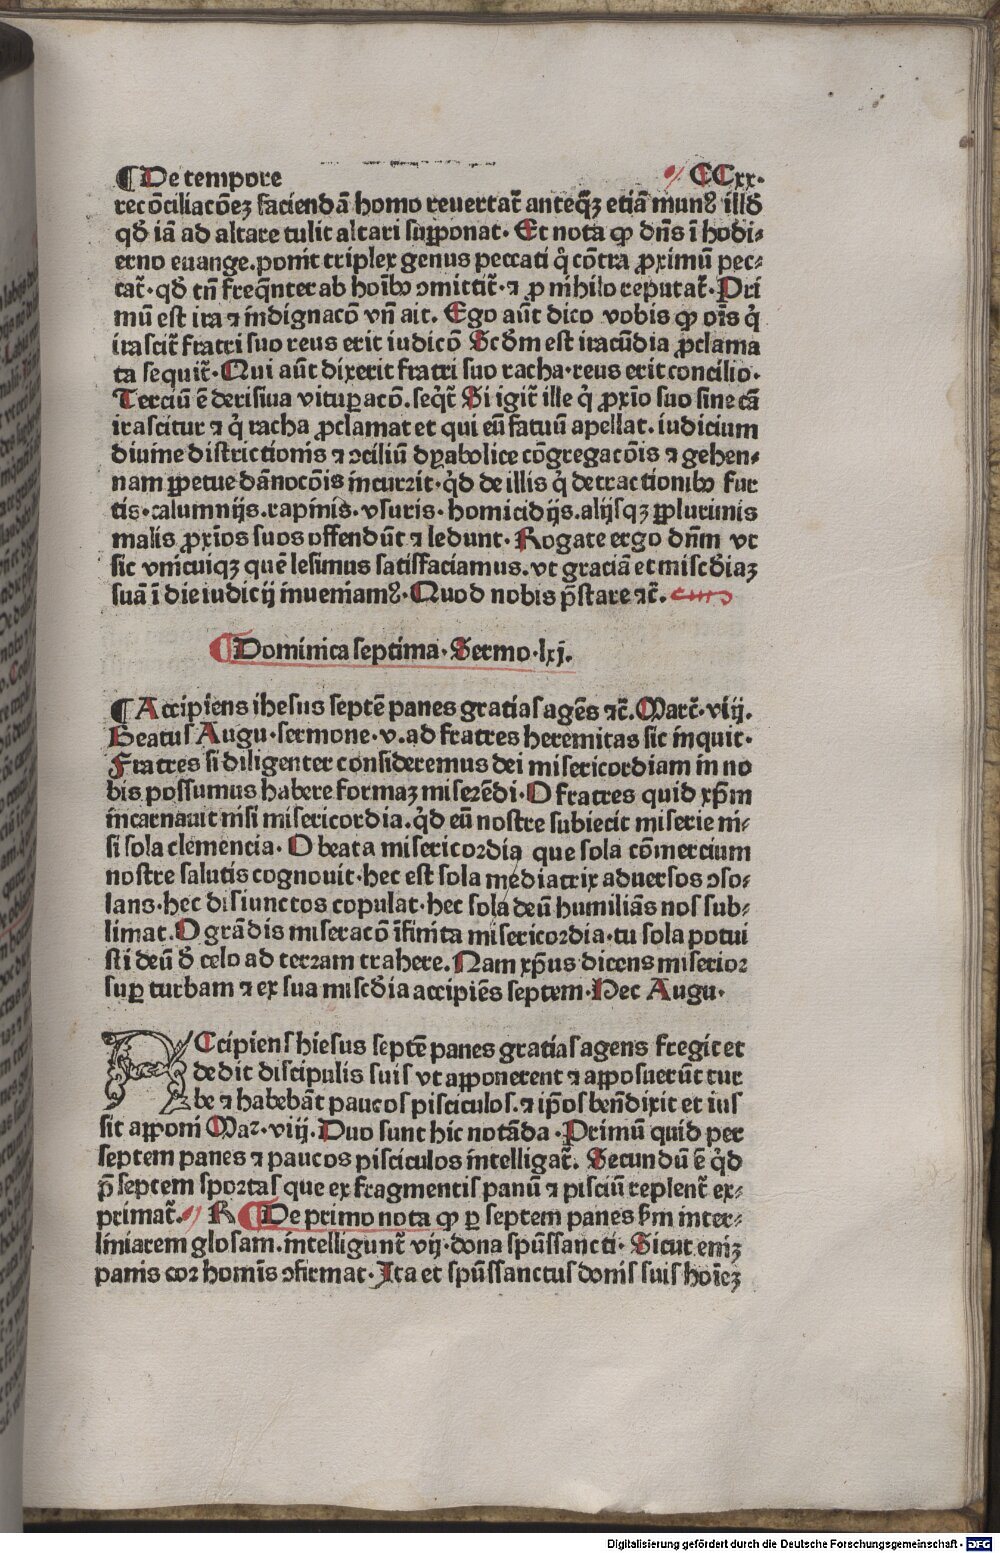 ¶De tempore CCxx.
recōciliacōeꝫ faciendā homo reuertat̄ anteq̄ꝫ etiā munꝰ illđ
qđ iā ad altare tulit altari supponat. Et nota ꝙ dn̄s ī hodi-
erno euange.ponit triplex genus peccati q̇ cōtra ꝓximū pec-
cat̄. qđ tn̄ freq̄nter ab hoībꝰ ↄmittit̄. ⁊ ꝓ nihilo reputat̄. Pri
mū est ira ⁊ indignacō vn̄ ait. Ego aūt dico vobis ꝙ oīs q̇
irascit̄ fratri suo reus erit iudicō Scđm est iracūdia ꝓclama
ta sequit̄. Qui aūt dixerit fratri suo racha.reus erit concilio.
Terciū ē derisiua vituꝑacō. seq̄t̄ Si igit̄ ille q̇ ꝓxīo suo sine cā
irascitur ⁊ q̇ racha ꝓclamat et qui eū fatuū apellat. iudicium
diuine districtionis ⁊ ↄciliū dyabolice cōgregacōis ⁊ gehen-
nam ꝑpetue dānocōis incurrit. q̇d de illis q̇ detractionibꝰ fur
tis.calumnijs.rapinis.vsuris.homicidijs.alijsqꝫ ꝓplurimis
malis ꝓxīos suos offendūt ⁊ ledunt. Rogate ergo dn̄m vt
sic vnicuiqꝫ quē lesimus satisfaciamus.vt graciā et misc̄diaꝫ
suā ī die iudicij inueniamꝰ. Quod nobis p̄stare ⁊c̄.
¶Dominica septima. Sermo.lxj.
¶Accipiens ihesus septē panes gratias agēs ⁊c̄. Marc̄. viij.
Beatus Augu.sermone.v.ad fratres heremitas sic inquit.
Fratres si diligenter consideremus dei misericordiam in no
bis possumus habere formaꝫ miserēdi. O fratres quid xp̄m
incarnauit nisi misericordia.q̇d eū nostre subiecit miserie ni-
si sola clemencia. O beata misericordia que sola cōmercium
nostre salutis cognouit.hec est sola mediatrix aduersos ↄso-
lans.hec disiunctos copulat.hec sola deū humiliās nos sub-
limat. O grādis miseracō īfinita misericordia.tu sola potui
sti deū đ celo ad terram trahere. Nam xp̄us dicens miserior
suꝑ turbam ⁊ ex sua misc̄dia accipiēs septem. Hec Augu.
ACcipiens hiesus septē panes gratias agens fregit et
dedit discipulis suis vt apponerent ⁊ apposuerūt tur
be ⁊ habebāt paucos pisciculos.⁊ ip̄os benēdixit et ius
sit apponi Mar.viij. Duo sunt hic notāda. Primū quid per
septem panes ⁊ paucos pisciculos intelligat̄. Secundū ē q̇d
p̄ septem sportas que ex fragmentis panū ⁊ pisciū replent̄ ex-
primat̄. R ¶De primo nota ꝙ ꝑ septem panes ẜm inter-
liniarem glosam.intelligunt̄ vij.dona spūssancti. Sicut enīꝫ
panis cor hominis ↄfirmat. Ita et spūssanctus donis suis hoīeꝫ
Digitalisierung gefördert durch die Deutsche Forschungsgemeinschaft - DFG